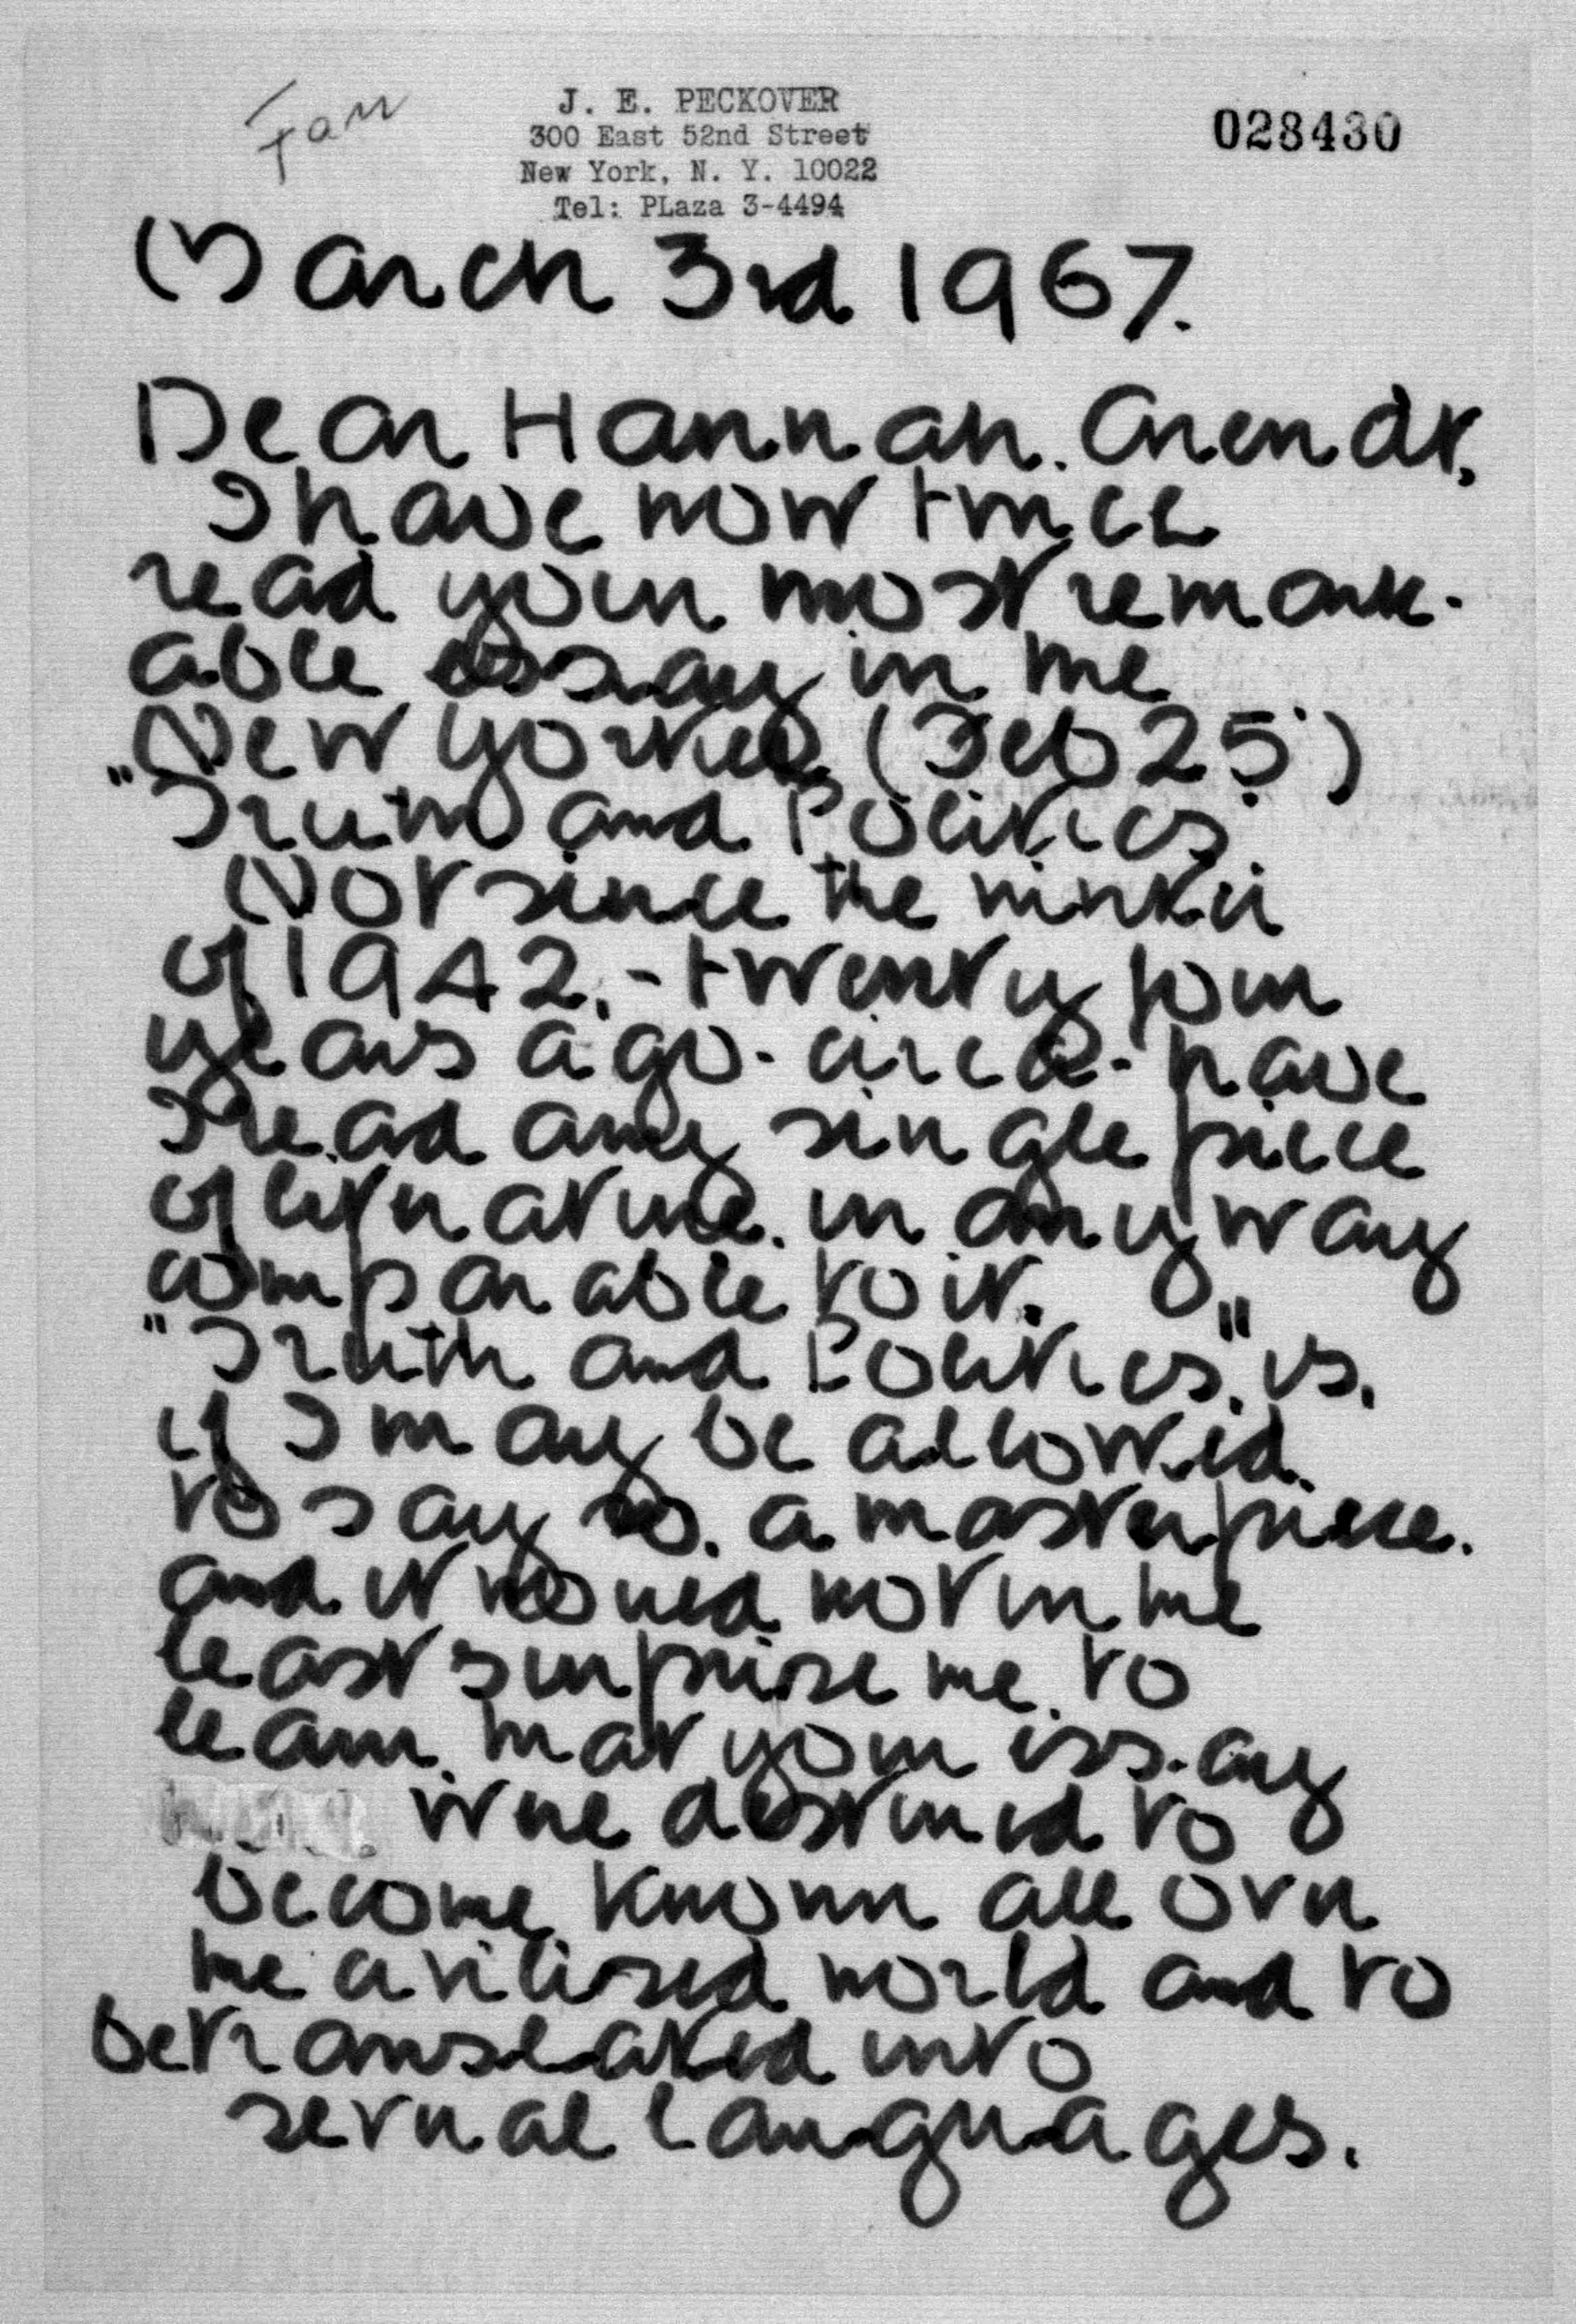 Fan
J. E. PECKOVER
300 East 52nd Street
New York, N. Y. 10022
Tel: PLaza 3-4494
028430
March 3rd 1967.
Dear Hannah Arendt,
I have now twice
read your most remark-
able essay in the
New Yorker (Feb 25)
"Truth and Politics.
Not since the winter
of 1942,- twenty four
years ago - circa - have
I read any single piece
of literature in any way
comparable to it.
"Truth and Politics", is,
if I may be allowed
to say so, a masterpiece.
and it would not in the
least surprise me to
learn that your essay
were destined to
become known all over
the civilised world and to
be translated into
several languages.